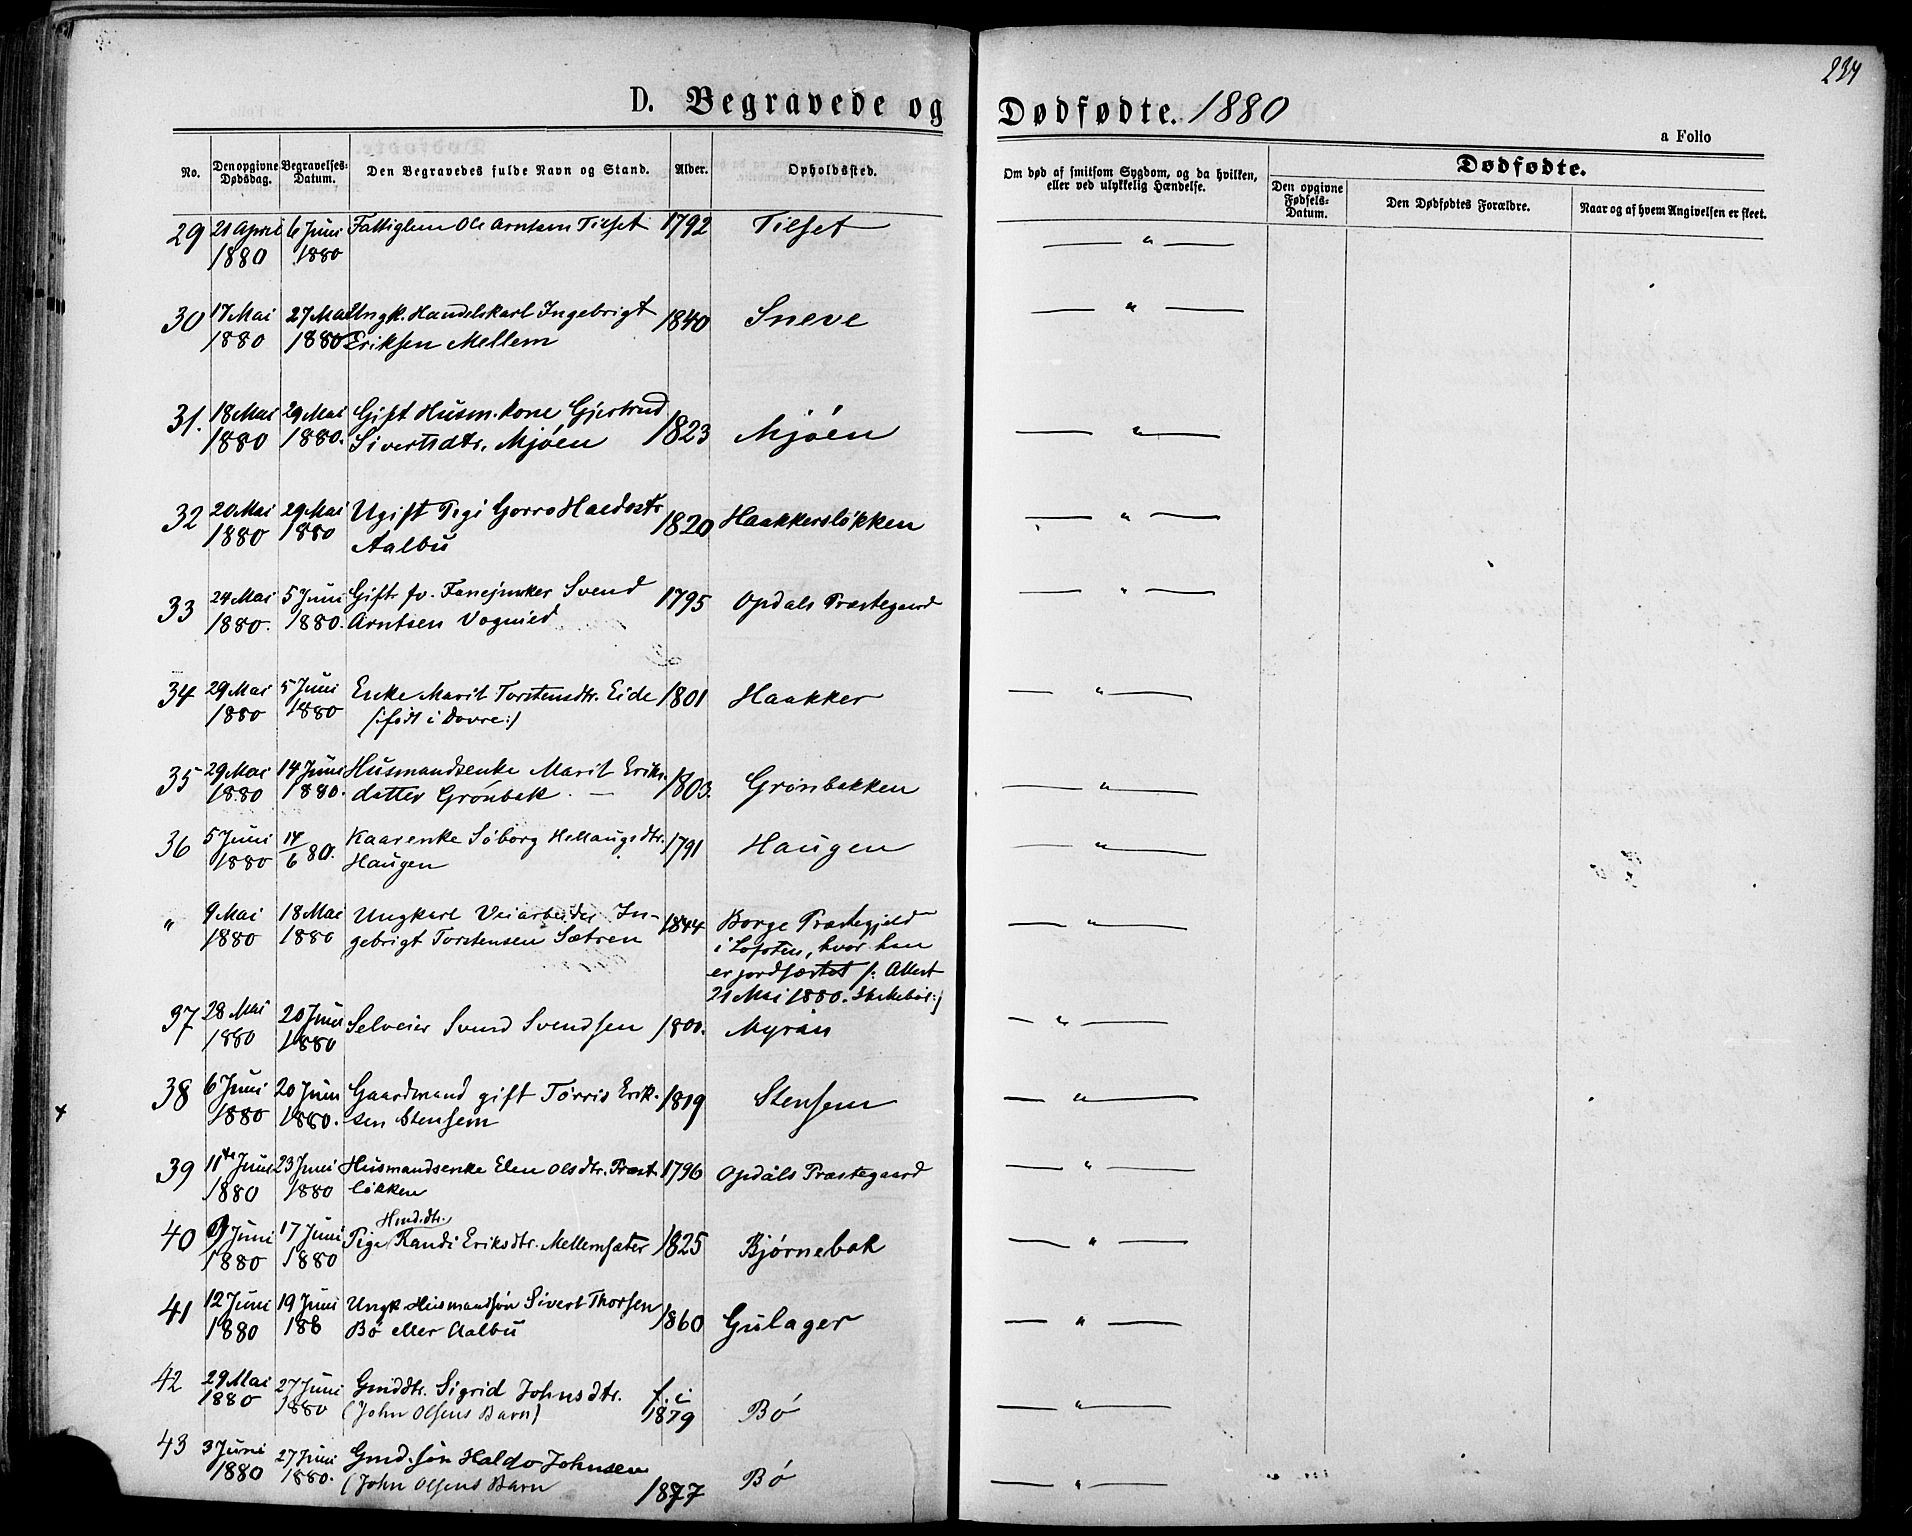 234
D. Begravede og Dødfødte. 1880
a Folio
No. Den opgivne Dødsdag. Begravelses-Datum. Den Begravedes fulde Navn og Stand. Alder. Opholdssted. Om død af smitsom Sygdom, og da hvilken, eller ved ulykkelig Hændelse. Dødfødte.
Den opgivne Fødsels-Datum. Den Dødfødtes Forældre. Naar og af hvem Angivelsen er skeet.
29 21 April 6 Juni Fattiglem Ole Arntsen Tilset 1792 Tilset — " —
1880 1880
30 17 Mai 27 Mai Ungk. Handelskarl Ingebrigt 1840 Sneve — " —
1880 1880 Eriksen Mellem
31. 18 Mai 29 Mai Gift Husm. kone Gjertrud 1823 Mjöen — " —
1880 1880. Sivertsdtr. Mjöen
32 20 Mai 29 Mai Ugift Pige Gorro 1820 Haakkersløkken — " —
1880 1880 Aalbu
33 24 Mai 5 Juni Gift fv. Fanejunker Svend 1795 Opdals Præstegaard — " —
1880. 1880. Arntsen Vognild
34 29 Mai 5 Juni Enke Marit Torstensdtr. Eide 1801 Haakker — " —
1880 1880 /:født i Dovre:/
35 29 Mai 14 Juni Husmandsenke Marit Eriks- 1803. Grönbakken — " —
1880 1880. datter Grönbak —
36 5 Juni 14/6 80. Kaarenke Söborg Hellaugsdtr. 1791 Haugen — " —
1880 Haugen
" 9 Mai 18 Mai Ungkarl Veiarbeider In- 1844 Borge Præstegjeld — " —
1880 1880 gebrigt Torstensen Sætren i Lofoten, hvor han
er jordfæstet /: Attest
21 Mai 1880. :/
37 28 Mai 20 Juni Selveier Svend Svendsen 1800. Myran — " —
1880 1880
38 6 Juni 20 Juni Gaardmand gift Törris Erik- 1819 Stensem — " —
1880 1880. sen Stensem
39 11te Juni 23 Juni Husmandsenke Elen Olsdtr. Præst- 1796 Opdals Præstegaard — " —
1880 1880 løkken
Hmd.dtr.
40 9 Juni 17 Juni Pige Randi Eriksdtr. Mellemsæter 1825 Bjørnebak — " —
1880 1880
41 12 Juni 19 Juni Ungk. Husmandsøn Sivert Thorsen 1860 Gulager — " —
1880 188 Bø eller Aalbu
42 29 Mai 27 Juni Gmddtr. Sigrid Johnsdtr. f. i Bø — " —
1880 1880 (John Olsens Barn) 1879
43 3 Juni 27 Juni Gmd. søn Haldo Johnsen 1877 Bø — " —
1880 1880. (John Olsens Barn